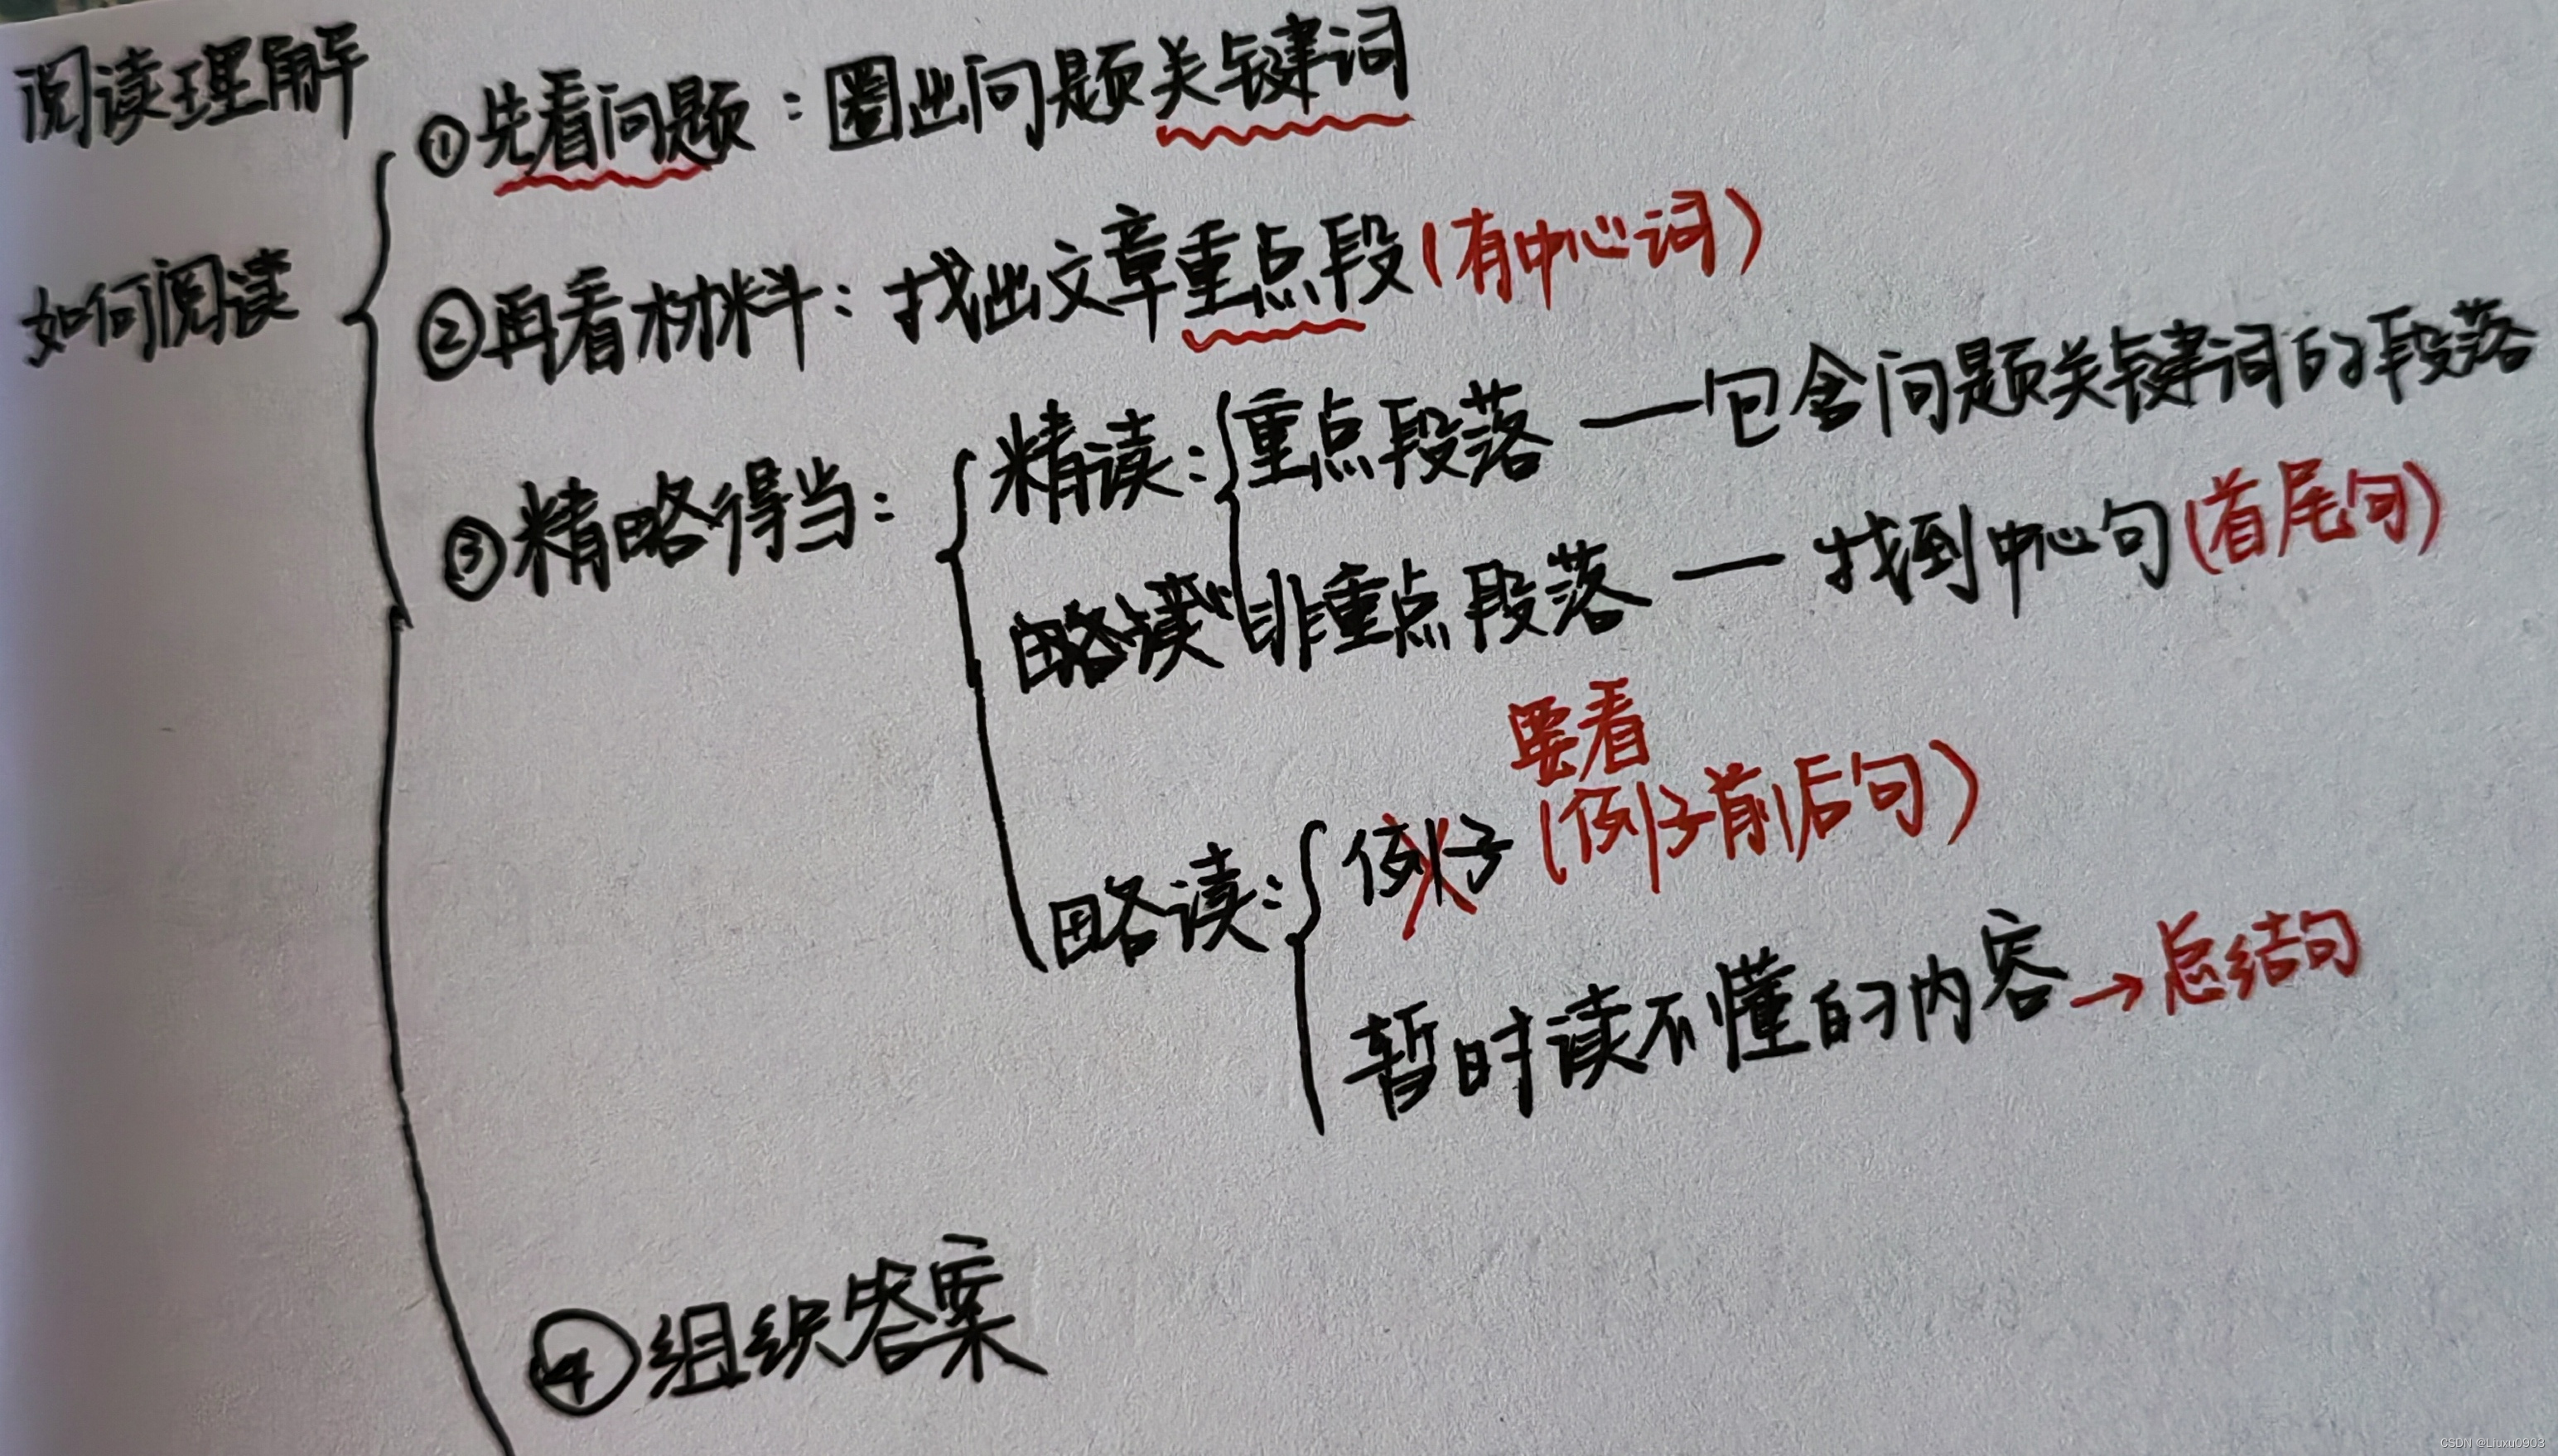 阅读理解
①先看问题：圈出问题关键词
如何阅读
②再看材料：找出文章重点段(有中心词)
③精略得当：
精读：重点段落 — 包含问题关键词的段落
非重点段落 — 找到中心句(首尾句)
要看
略读：例子(例子前后句)
暂时读不懂的内容→总结句
④组织答案
CSDN @Liuxu0903